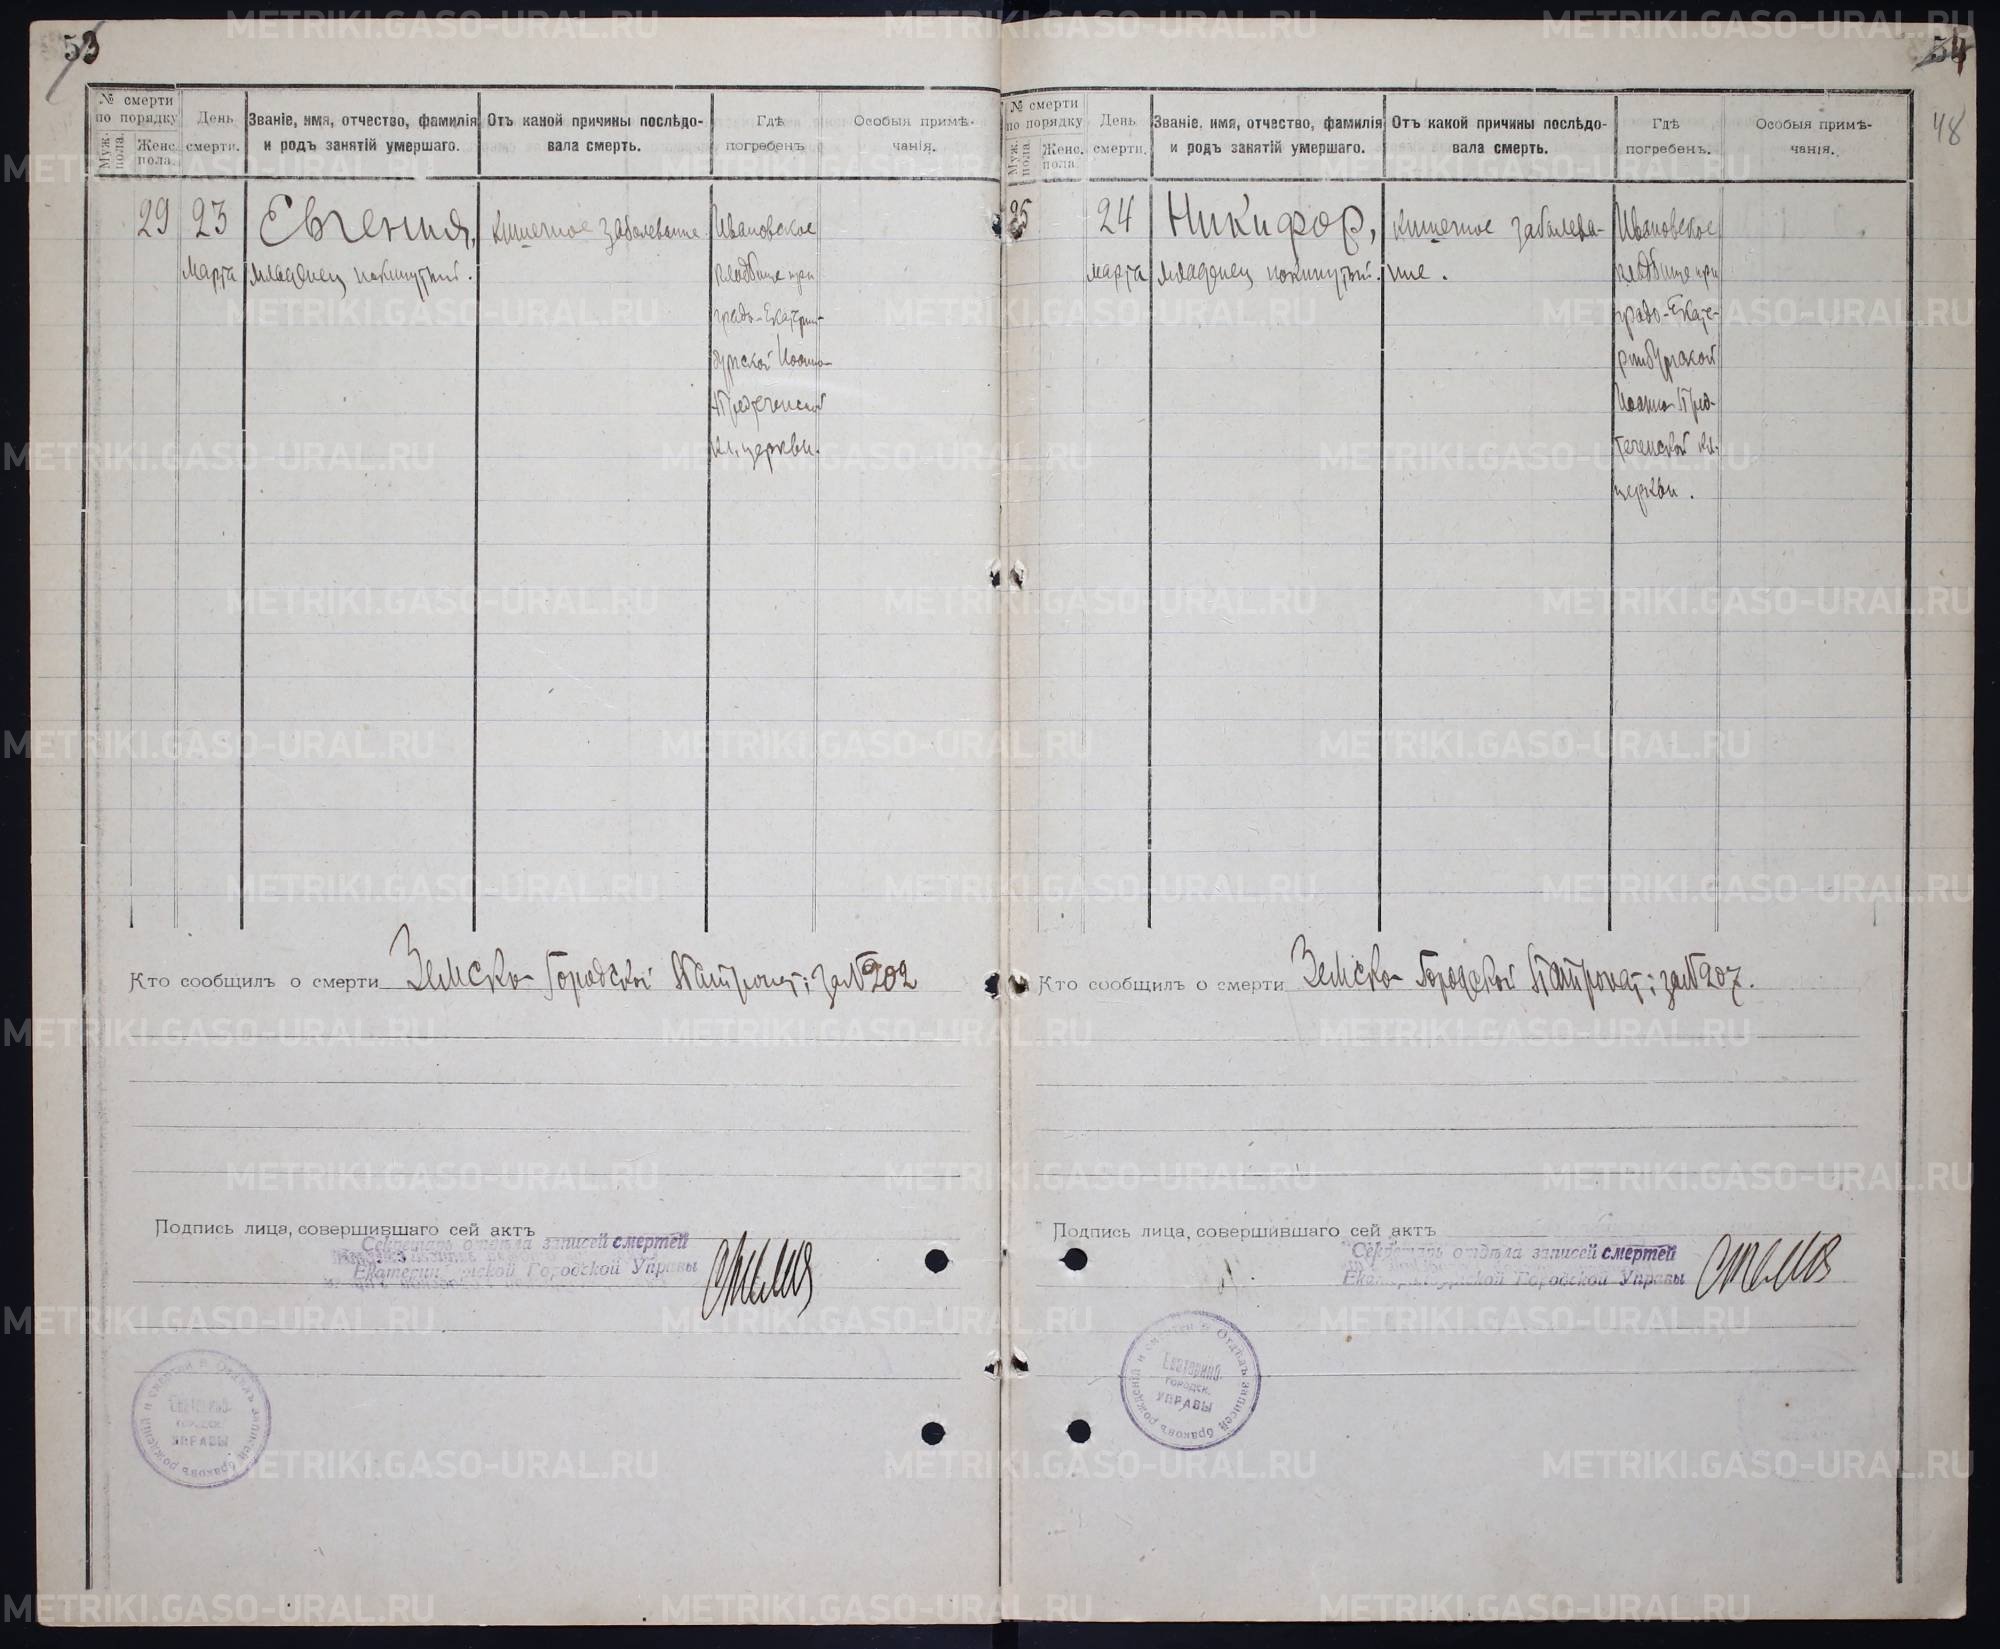 53
№ смерти по порядку
Муж. пола.
Женс. пола.
День смерти.
Званіе, имя, отчество, фамилія и родъ занятій умершаго.
Отъ какой причины послѣдовала смерть.
Гдѣ погребенъ
Особыя примѣчанія.
29
23
марта
Евгения,
младенец покинутый.
кишечное заболевание.
Ивановское
кладбище при
градо-Екатерин-
бургской Иоанно-
Предтеченской
кл. церкви.
Кто сообщилъ о смерти Земско-Городской Патронат; за № 202
Подпись лица, совершившаго сей актъ
Секретарь отдѣла записей смертей
Екатеринбургской Городской Управы
Отдѣлъ записей браковъ рожденій и смертей
Екатеринб.
ГОРОДСК.
УПРАВЫ
54
48
№ смерти по порядку
Муж. пола.
Женс. пола.
День смерти.
Званіе, имя, отчество, фамилія и родъ занятій умершаго.
Отъ какой причины послѣдовала смерть.
Гдѣ погребенъ.
Особыя примѣчанія.
24
марта
Никифор,
младенец покинутый.
кишечное заболева-
ние.
Ивановское
кладбище при
градо-Екате-
ринбургской
Иоанно-Пред-
теченской кл.
церкви.
Кто сообщилъ о смерти Земско-Городской Патронат; за № 207.
Подпись лица, совершившаго сей актъ
Секретарь отдѣла записей смертей
Екатеринбургской Городской Управы
Отдѣлъ записей браковъ рожденій и смертей
Екатеринб.
ГОРОДСК.
УПРАВЫ
METRIKI.GASO-URAL.RU